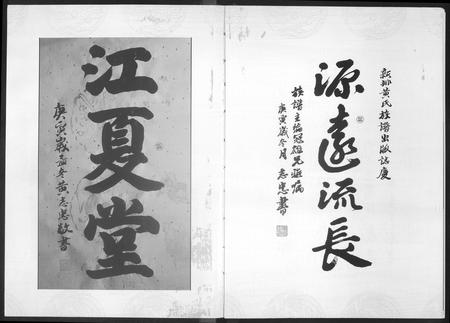 新排黃氏族譜出版誌慶
源遠流長
族譜主編冠雄兄
庚寅歲冬月 志忠書
江夏堂
庚寅歲孟冬黃志忠敬書